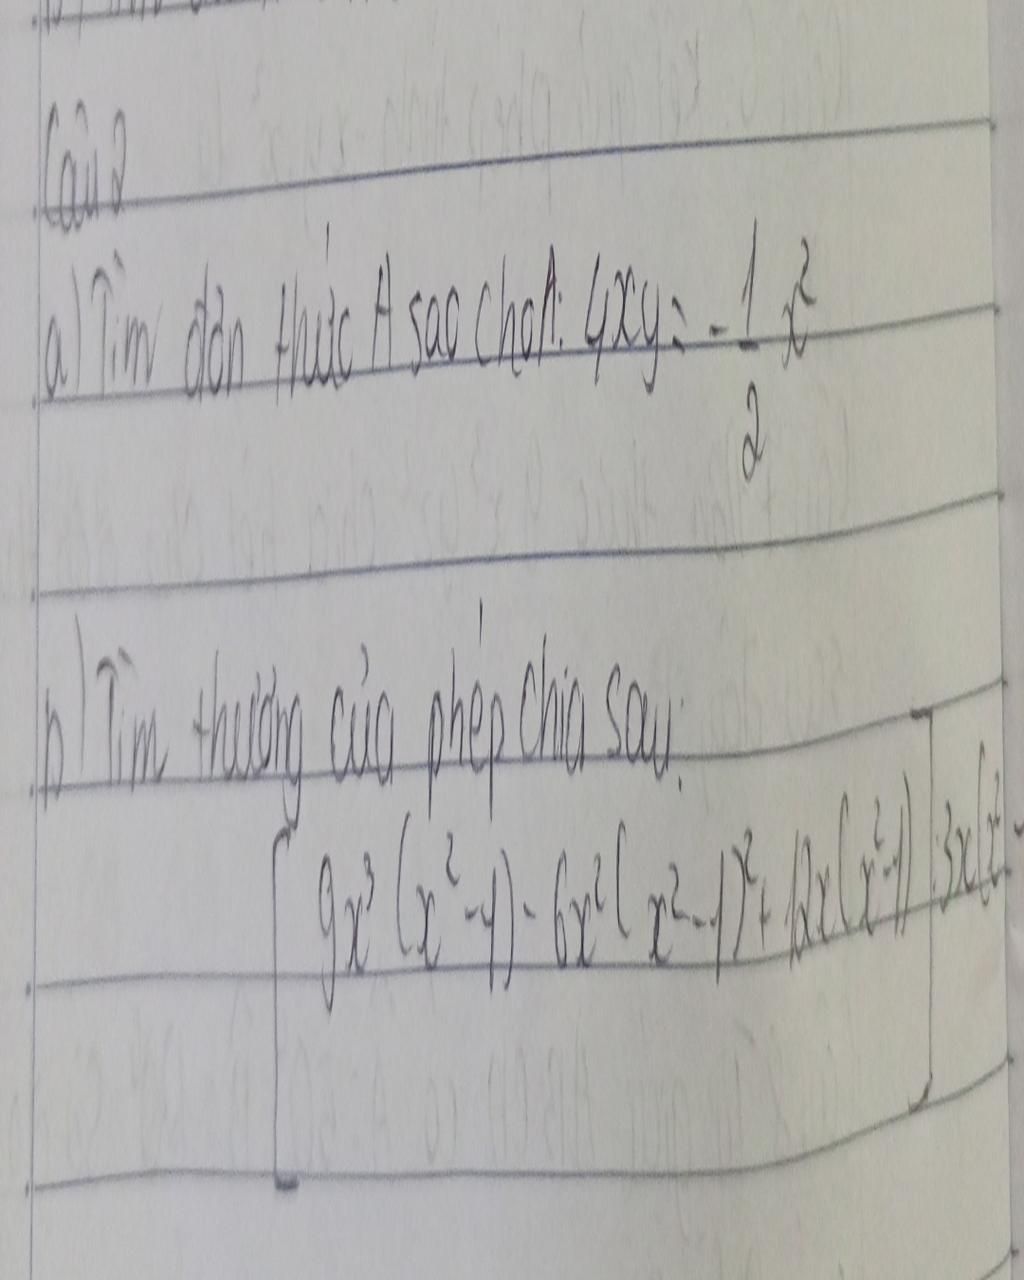 Câu 2
a) Tìm đơn thức A sao cho A: 4xy = -1/2 x²
b) Tìm thương của phép chia sau:
[9x³(x²-1) - 6x²(x²-1)² + 12x(x²-1)] : 3x(x²-